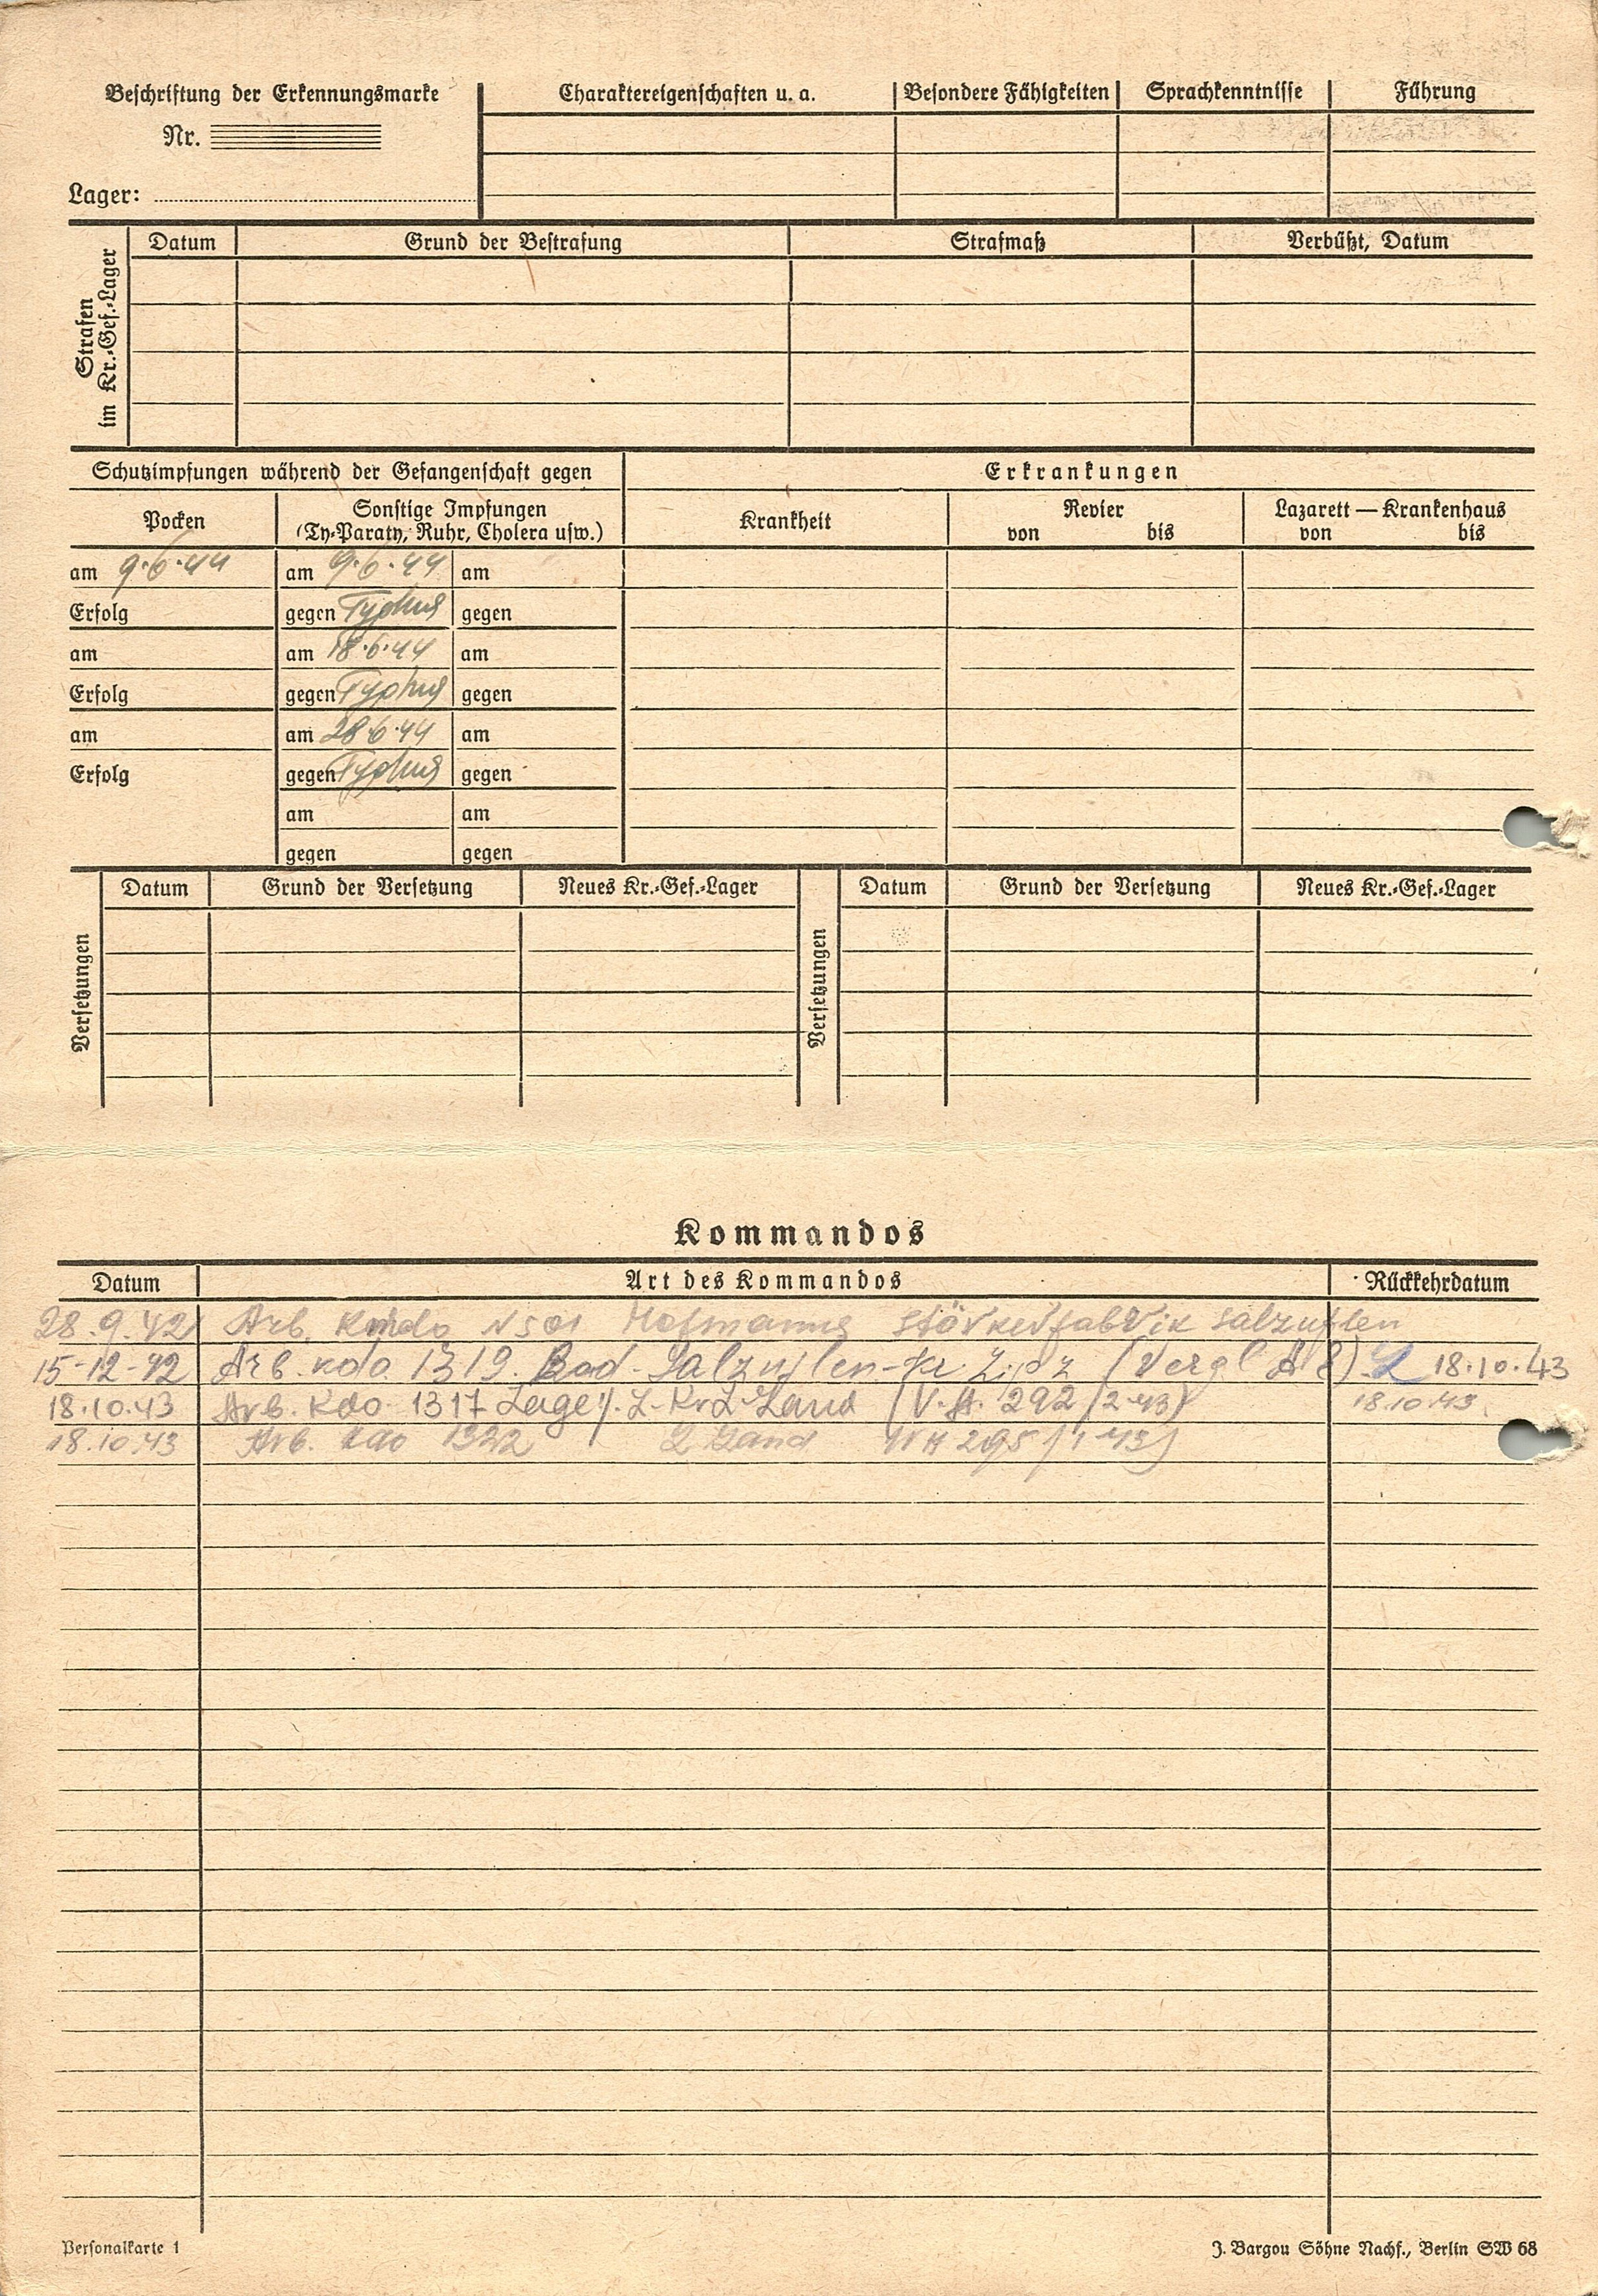 Beschriftung der Erkennungsmarke Charaktereigenschaften u. a. Besondere Fähigkeiten Sprachkenntnisse Führung
Nr.
Lager:
Strafen im Kr.-Gef.-Lager
Datum Grund der Bestrafung Strafmaß Verbüßt, Datum
Schutzimpfungen während der Gefangenschaft gegen Erkrankungen
Pocken Sonstige Impfungen Krankheit Revier Lazarett — Krankenhaus
(Ty-Paraty, Ruhr, Cholera usw.) von bis von bis
am 9.6.44 am 9.6.44 am
Erfolg gegen Typhus gegen
am am 18.6.44 am
Erfolg gegen Typhus gegen
am am 28.6.44 am
Erfolg gegen Typhus gegen
am am
gegen gegen
Versetzungen Datum Grund der Versetzung Neues Kr.-Gef.-Lager Versetzungen Datum Grund der Versetzung Neues Kr.-Gef.-Lager
Kommandos
Datum Art des Kommandos Rückkehrdatum
28.9.42 Arb. Komdo Hofmanns Stärkefabrik Salzuflen
15-12-42 Arb. kdo. 1319. Bad-Salzuflen-Kr. (Vergl. A 8). 18.10.43
18.10.43 Arb. Kdo. 1317 Lage Land (V.A. 292/2-43) 18.10.43
18.10.43 Arb. kdo 1322 Land 295/1-43)
Personalkarte 1 J. Bargou Söhne Nachf., Berlin SW 68